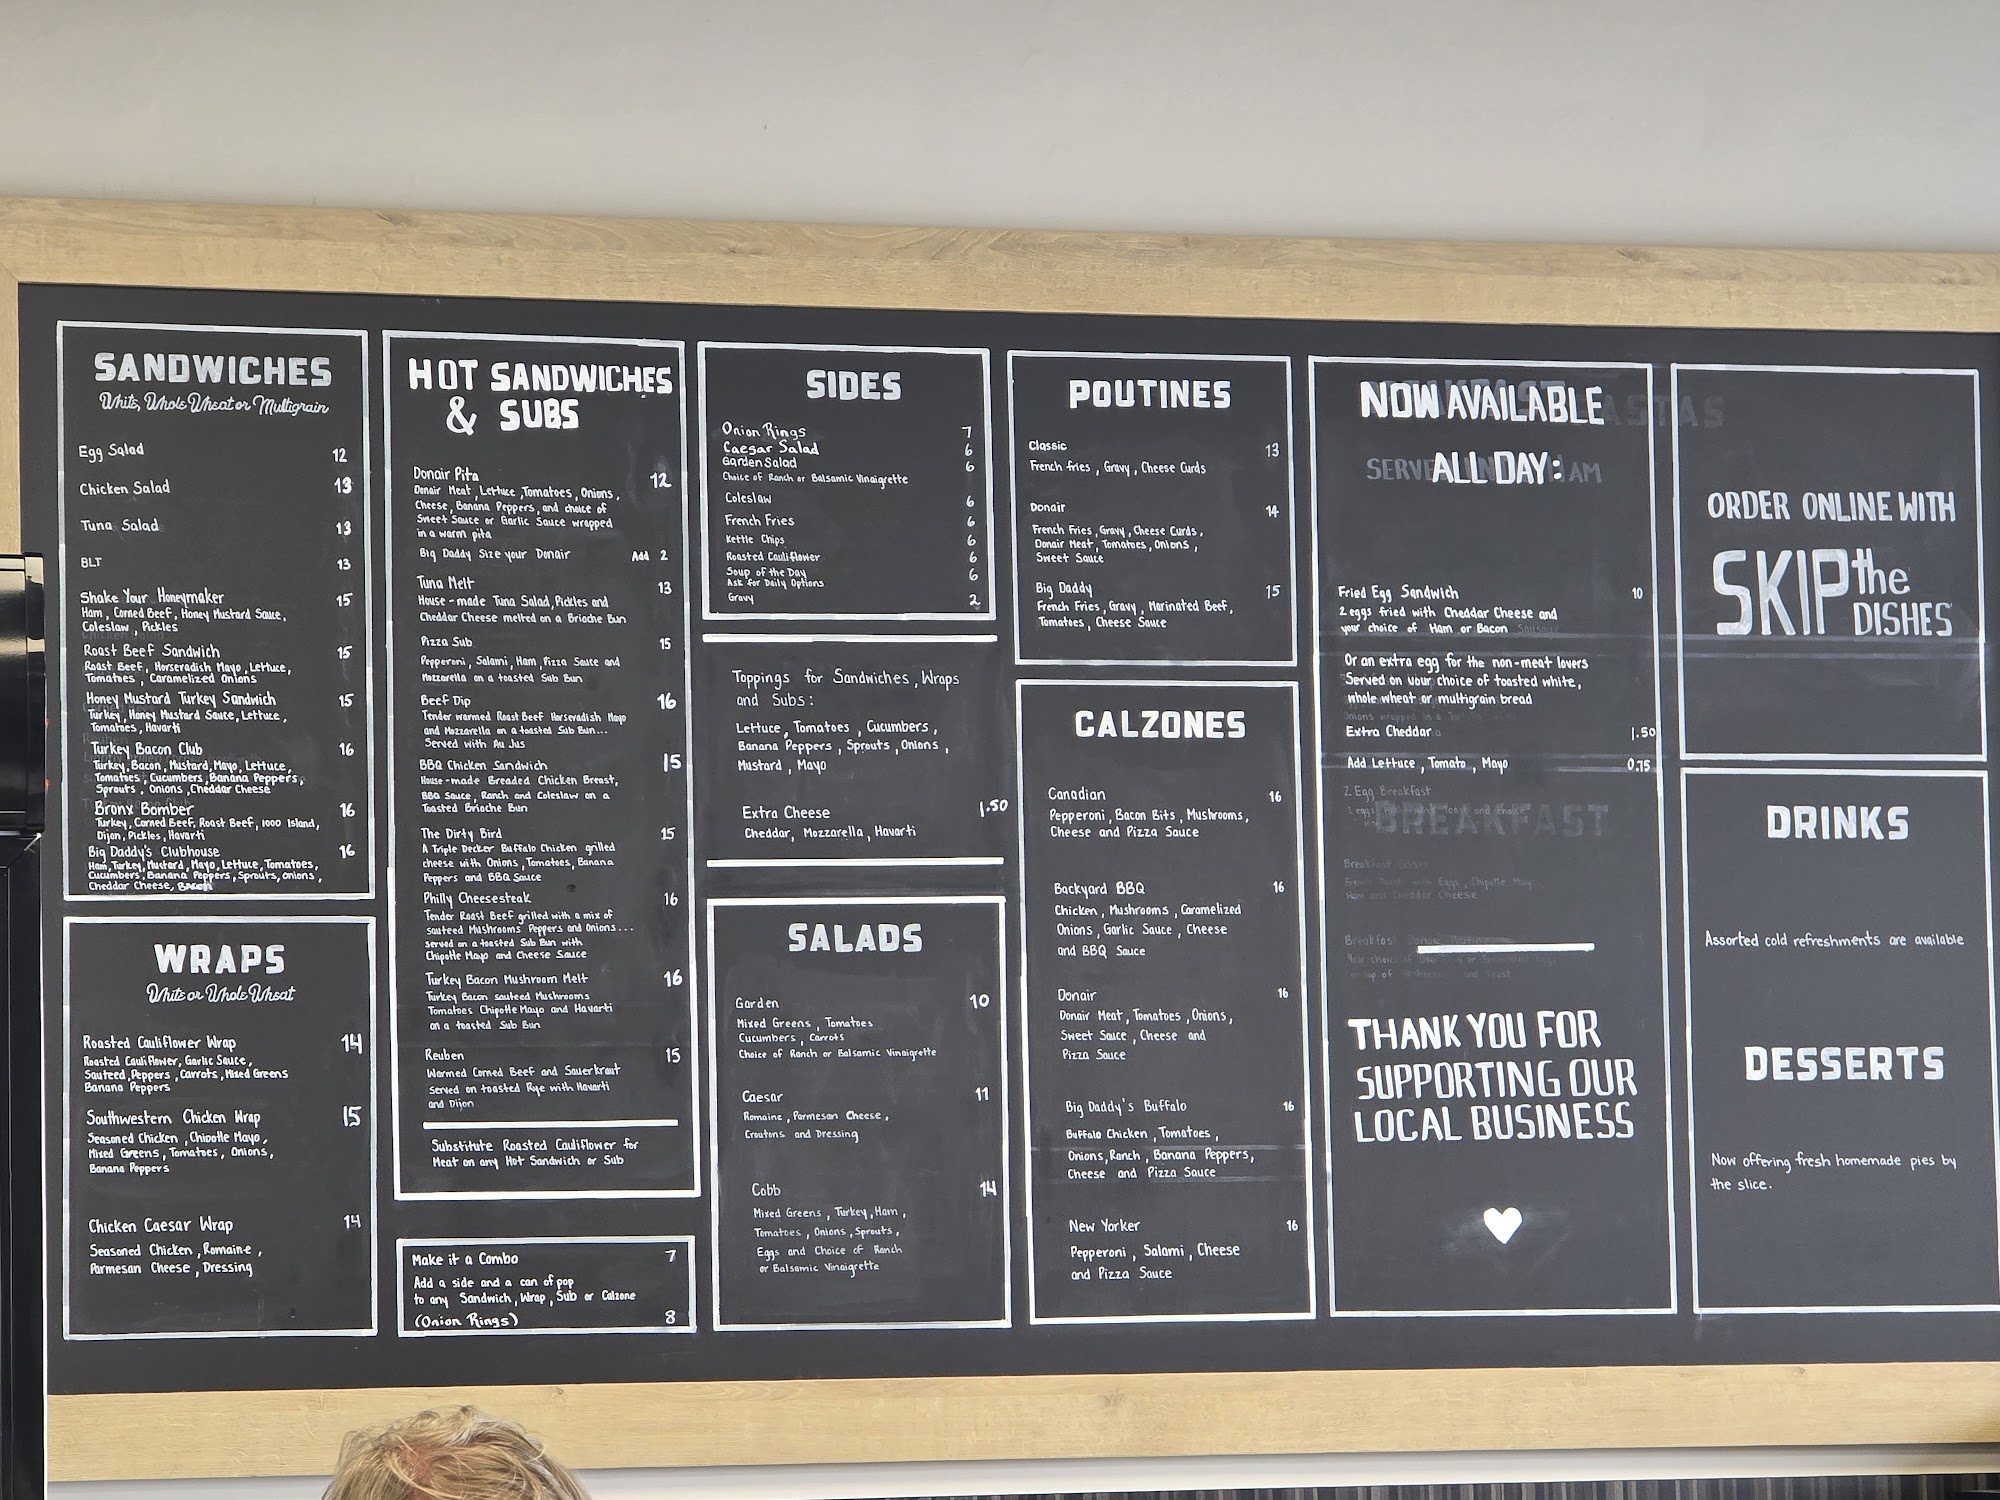 SANDWICHES
White, Whole Wheat or Multigrain
Egg Salad 12
Chicken Salad 13
Tuna Salad 13
BLT 13
Shake Your Honeymaker 15
Ham, Corned Beef, Honey Mustard Sauce,
Coleslaw, Pickles
Roast Beef Sandwich 15
Roast Beef, Horseradish Mayo, Lettuce,
Tomatoes, Caramelized Onions
Honey Mustard Turkey Sandwich 15
Turkey, Honey Mustard Sauce, Lettuce,
Tomatoes, Havarti
Turkey Bacon Club 16
Turkey, Bacon, Mustard, Mayo, Lettuce,
Tomatoes, Cucumbers, Banana Peppers,
Sprouts, Onions, Cheddar Cheese
Bronx Bomber 16
Turkey, Corned Beef, Roast Beef, 1000 Island,
Dijon, Pickles, Havarti
Big Daddy's Clubhouse 16
Ham, Turkey, Mustard, Mayo, Lettuce, Tomatoes,
Cucumbers, Banana Peppers, Sprouts, Onions,
Cheddar Cheese, Bacon
WRAPS
White or Whole Wheat
Roasted Cauliflower Wrap 14
Roasted Cauliflower, Garlic Sauce,
Sauteed Peppers, Carrots, Mixed Greens
Banana Peppers
Southwestern Chicken Wrap 15
Seasoned Chicken, Chipotle Mayo,
Mixed Greens, Tomatoes, Onions,
Banana Peppers
Chicken Caesar Wrap 14
Seasoned Chicken, Romaine,
Parmesan Cheese, Dressing
HOT SANDWICHES
& SUBS
Donair Pita 12
Donair Meat, Lettuce, Tomatoes, Onions,
Cheese, Banana Peppers, and choice of
Sweet Sauce or Garlic Sauce wrapped
in a warm pita
Big Daddy Size your Donair Add 2
Tuna Melt 13
House-made Tuna Salad, Pickles and
Cheddar Cheese melted on a Brioche Bun
Pizza Sub 15
Pepperoni, Salami, Ham, Pizza Sauce and
Mozzarella on a toasted Sub Bun
Beef Dip 16
Tender warmed Roast Beef Horseradish Mayo
and Mozzarella on a toasted Sub Bun...
Served with Au Jus
BBQ Chicken Sandwich 15
House-made Breaded Chicken Breast,
BBQ Sauce, Ranch and Coleslaw on a
Toasted Brioche Bun
The Dirty Bird 15
A Triple Decker Buffalo Chicken grilled
cheese with Onions, Tomatoes, Banana
Peppers and BBQ Sauce
Philly Cheesesteak 16
Tender Roast Beef grilled with a mix of
sauteed Mushrooms Peppers and Onions...
served on a toasted Sub Bun with
Chipotle Mayo and Cheese Sauce
Turkey Bacon Mushroom Melt 16
Turkey Bacon sauteed Mushrooms
Tomatoes Chipotle Mayo and Havarti
on a toasted Sub Bun
Reuben 15
Warmed Corned Beef and Sauerkraut
served on toasted Rye with Havarti
and Dijon
Substitute Roasted Cauliflower for
Meat on any Hot Sandwich or Sub
Make it a Combo 7
Add a side and a can of pop
to any Sandwich, Wrap, Sub or Calzone
(Onion Rings) 8
SIDES
Onion Rings 7
Caesar Salad 6
Garden Salad 6
Choice of Ranch or Balsamic Vinaigrette
Coleslaw 6
French Fries 6
Kettle Chips 6
Roasted Cauliflower 6
Soup of the Day 6
Ask for Daily Options
Gravy 2
Toppings for Sandwiches, Wraps
and Subs:
Lettuce, Tomatoes, Cucumbers,
Banana Peppers, Sprouts, Onions,
Mustard, Mayo
Extra Cheese 1.50
Cheddar, Mozzarella, Havarti
SALADS
Garden 10
Mixed Greens, Tomatoes
Cucumbers, Carrots
Choice of Ranch or Balsamic Vinaigrette
Caesar 11
Romaine, Parmesan Cheese,
Croutons and Dressing
Cobb 14
Mixed Greens, Turkey, Ham,
Tomatoes, Onions, Sprouts,
Eggs and Choice of Ranch
or Balsamic Vinaigrette
POUTINES
Classic 13
French fries, Gravy, Cheese Curds
Donair 14
French Fries, Gravy, Cheese Curds,
Donair Meat, Tomatoes, Onions,
Sweet Sauce
Big Daddy 15
French Fries, Gravy, Marinated Beef,
Tomatoes, Cheese Sauce
CALZONES
Canadian 16
Pepperoni, Bacon Bits, Mushrooms,
Cheese and Pizza Sauce
Backyard BBQ 16
Chicken, Mushrooms, Caramelized
Onions, Garlic Sauce, Cheese
and BBQ Sauce
Donair 16
Donair Meat, Tomatoes, Onions,
Sweet Sauce, Cheese and
Pizza Sauce
Big Daddy's Buffalo 16
Buffalo Chicken, Tomatoes,
Onions, Ranch, Banana Peppers,
Cheese and Pizza Sauce
New Yorker 16
Pepperoni, Salami, Cheese
and Pizza Sauce
NOW AVAILABLE
ALL DAY:
Fried Egg Sandwich 10
2 eggs fried with Cheddar Cheese and
your choice of Ham or Bacon
Or an extra egg for the non-meat lovers
Served on your choice of toasted white,
whole wheat or multigrain bread
Extra Cheddar 1.50
Add Lettuce, Tomato, Mayo 0.75
2 Egg Breakfast
BREAKFAST
THANK YOU FOR
SUPPORTING OUR
LOCAL BUSINESS
ORDER ONLINE WITH
SKIP the
DISHES
DRINKS
Assorted cold refreshments are available
DESSERTS
Now offering fresh homemade pies by
the slice.